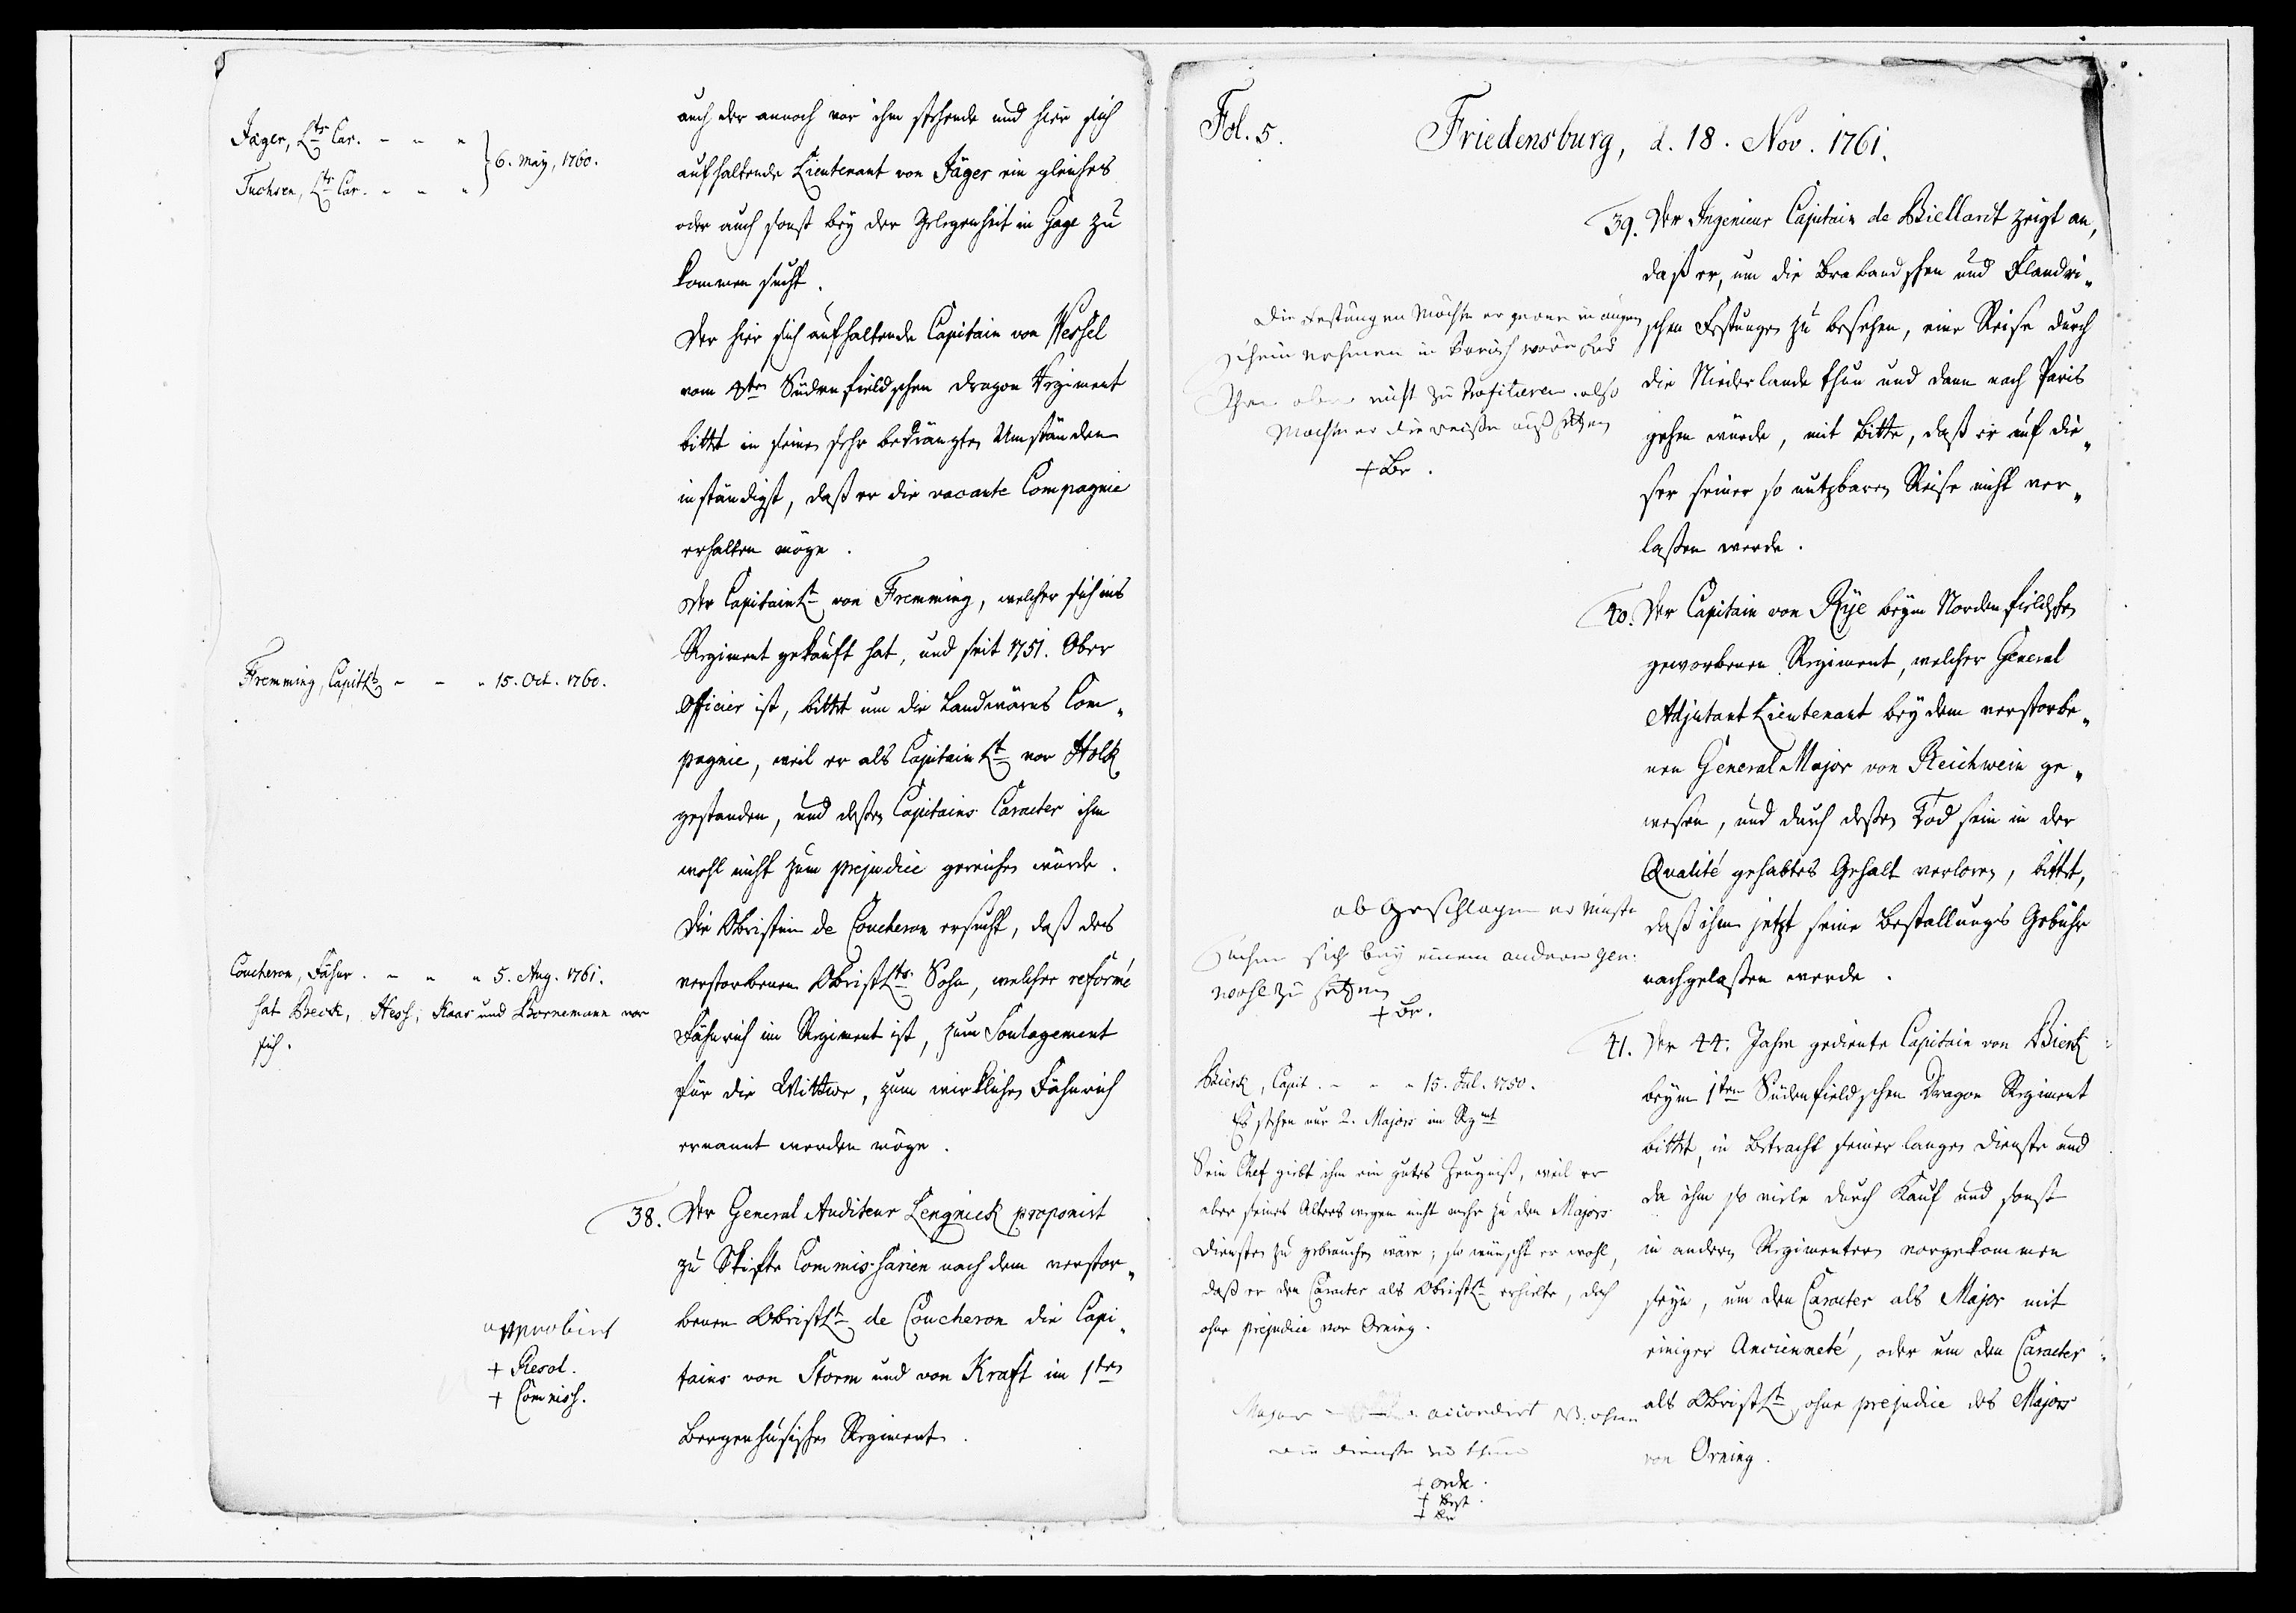 Jäger, Lts Car. - - -
6. May, 1760.
Tuchsen, Lts Car. - - -
auch der annoch vor ihm stehende und hier sich
aufhaltende Lieutenant von Jäger ein gleiches
oder auch sonst bey der Gelegenheit in Gage zu
kommen sucht.
Der hier sich aufhaltende Capitain von Wessel
vom 4ten Südenfieldschen Dragon Regiment
bittet in seinen sehr bedrängten Umständen
inständigst, daß er die vacante Compagnie
erhalten möge.
Der CapitainLt von Fremming, welcher sich ins
Regiment gekauft hat, und seit 1751. Ober
Fremming, CapitLt - - - 15. Oct. 1760.
Officier ist, bittet um die Landwärns Com-
pagnie, weil er als CapitainLt vor Holck
gestanden, und deßen Capitains Caracter ihm
wohl nicht zum prejudice gereichen würde.
Die Obristin de Coucheron ersucht, daß des
Coucheron, Fähnr. - - - 5. Aug. 1761.
hat Beck, Hess, Kaas und Bornemann vor
sich.
verstorbenen ObristLts Sohn, welcher reformé
Fähnrich im Regiment ist, zum Soulagement
für die Wittwe, zum wirklichen Fähnrich
ernannt werden möge.
38. Der General Auditeur Lengnick proponirt
zu Skifte Commissarien nach dem verstor-
benen ObristLt de Coucheron die Capi-
tains von Storm und von Kraft im 1ten
Bergenhusischen Regiment.
approbirt
+ Resol.
+ Commiss.
Fol. 5.
Friedensburg, d. 18. Nov. 1761.
39. Der Ingenieur Capitain de Biellard zeigt an,
daß er, um die Brabandschen und Flandri-
schen Festungen zu besehen, eine Reise durch
die Niederlande thun und dann nach Paris
gehen würde, mit Bitte, daß er auf die-
ser seiner so nutzbaren Reise nicht ver-
laßen werde.
Die Festungen möchte er gerne in augen
schein nehmen in Parisch wäre für
Ihm aber nicht zu profitieren. also
möchte er die reiße auß setzen
+ Br.
40. Der Capitain von Rye beym Nordenfieldschen
geworbenen Regiment, welcher General
Adjutant Lieutenant bey dem verstorbe-
nen General Major von Reichwein ge-
wesen, und durch deßen Tod sein in der
Qualité gehabtes Gehalt verloren, bittet,
daß ihm jetzt seine Bestallungs Gebühr
nachgelaßen werde.
abgeschlagen er müste
suchen sich bey einem andern Gen:
wohl zu setzen
+ Br.
41. Der 44. Jahre gediente Capitain von Bierk
beym 1ten Südenfieldschen Dragon Regiment
bittet, in Betracht seiner langen Dienste und
da ihm so viele durch Kauf und sonst
in andern Regimentern vorgekommen
seyn, um den Caracter als Major mit
einiger Ancienneté, oder um den Caracter
als ObristLt, ohne prejudice des Majors
von Orning.
Bierk, Capit. - - - 15. Jul. 1750.
Es stehen nur 2. Majors im Rgmt
Sein Chef giebt ihm ein gutes Zeugniß, weil er
aber seines Alters wegen nicht mehr zu den Majors
Diensten zu gebrauchen wäre; so wünscht er wohl,
daß er den Caracter als ObristLt erhielte, doch
ohne prejudice vor Orning.
Major accordirt NB. ohne
die dienste zu thun
+ Ordr.
+ Best.
+ Br